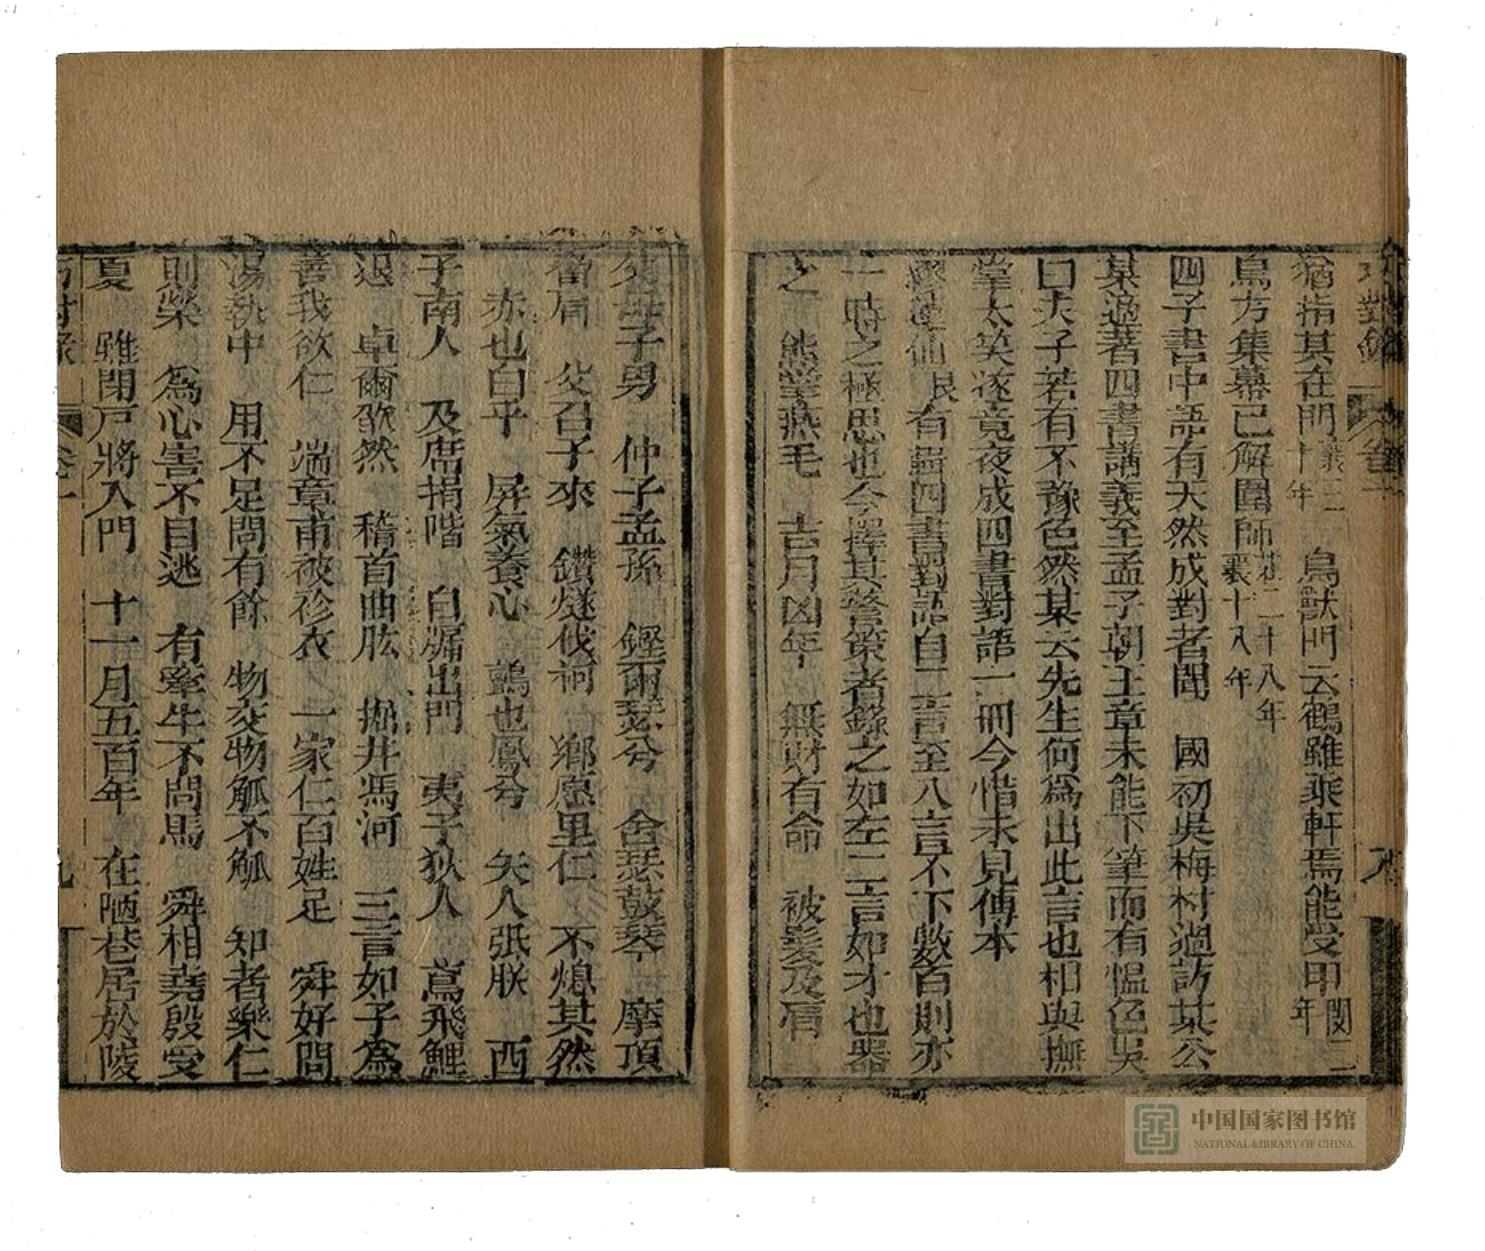 巧對錄 卷一 八
猶指其在門 僖三十年 鳥獸門云鶴雖乘軒焉能受甲 閔二年
鳥方集幕已解圍師 莊二十八年 襄十八年
四子書中語有天然成對者聞 國初吳梅村過訪某公
某適著四書講義至孟子朝王章未能下筆而有慍色吳
曰夫子若有不豫色然某云先生何為出此言也相與撫
掌大笑遂竟夜成四書對語一冊今惜未見傳本
繆蓮仙艮有四書對語自二言至八言不下數百則亦
一時之極思也今擇其警策者錄之如左二言如才也器
之 熊掌燕毛 吉月凶年 無財有命 被髮及肩
先母子男 仲子孟孫 鏗爾瑟兮 舍瑟鼓琴 摩頂
脅肩 父召子來 鑽燧伐柯 鄉愿里仁 不熄其然
赤也白乎 屏氣養心 鷊也鳳兮 矢人張朕 西
子南人 及席捐階 自牖出門 夷子狄人 鳶飛鯉
退 卓爾欿然 稽首曲肱 掘井馮河 三言如子為
善我欲仁 端章甫被袗衣 一家仁百姓足 舜好問
湯執中 用不足問有餘 物交物觚不觚 知者樂仁
則榮 為心害不目逃 有牽牛不問馬 舜相堯殷受
夏 雖閉戶將入門 十一月五百年 在陋巷居於陵
巧對錄 卷一 九
中国国家图书馆
NATIONAL LIBRARY OF CHINA